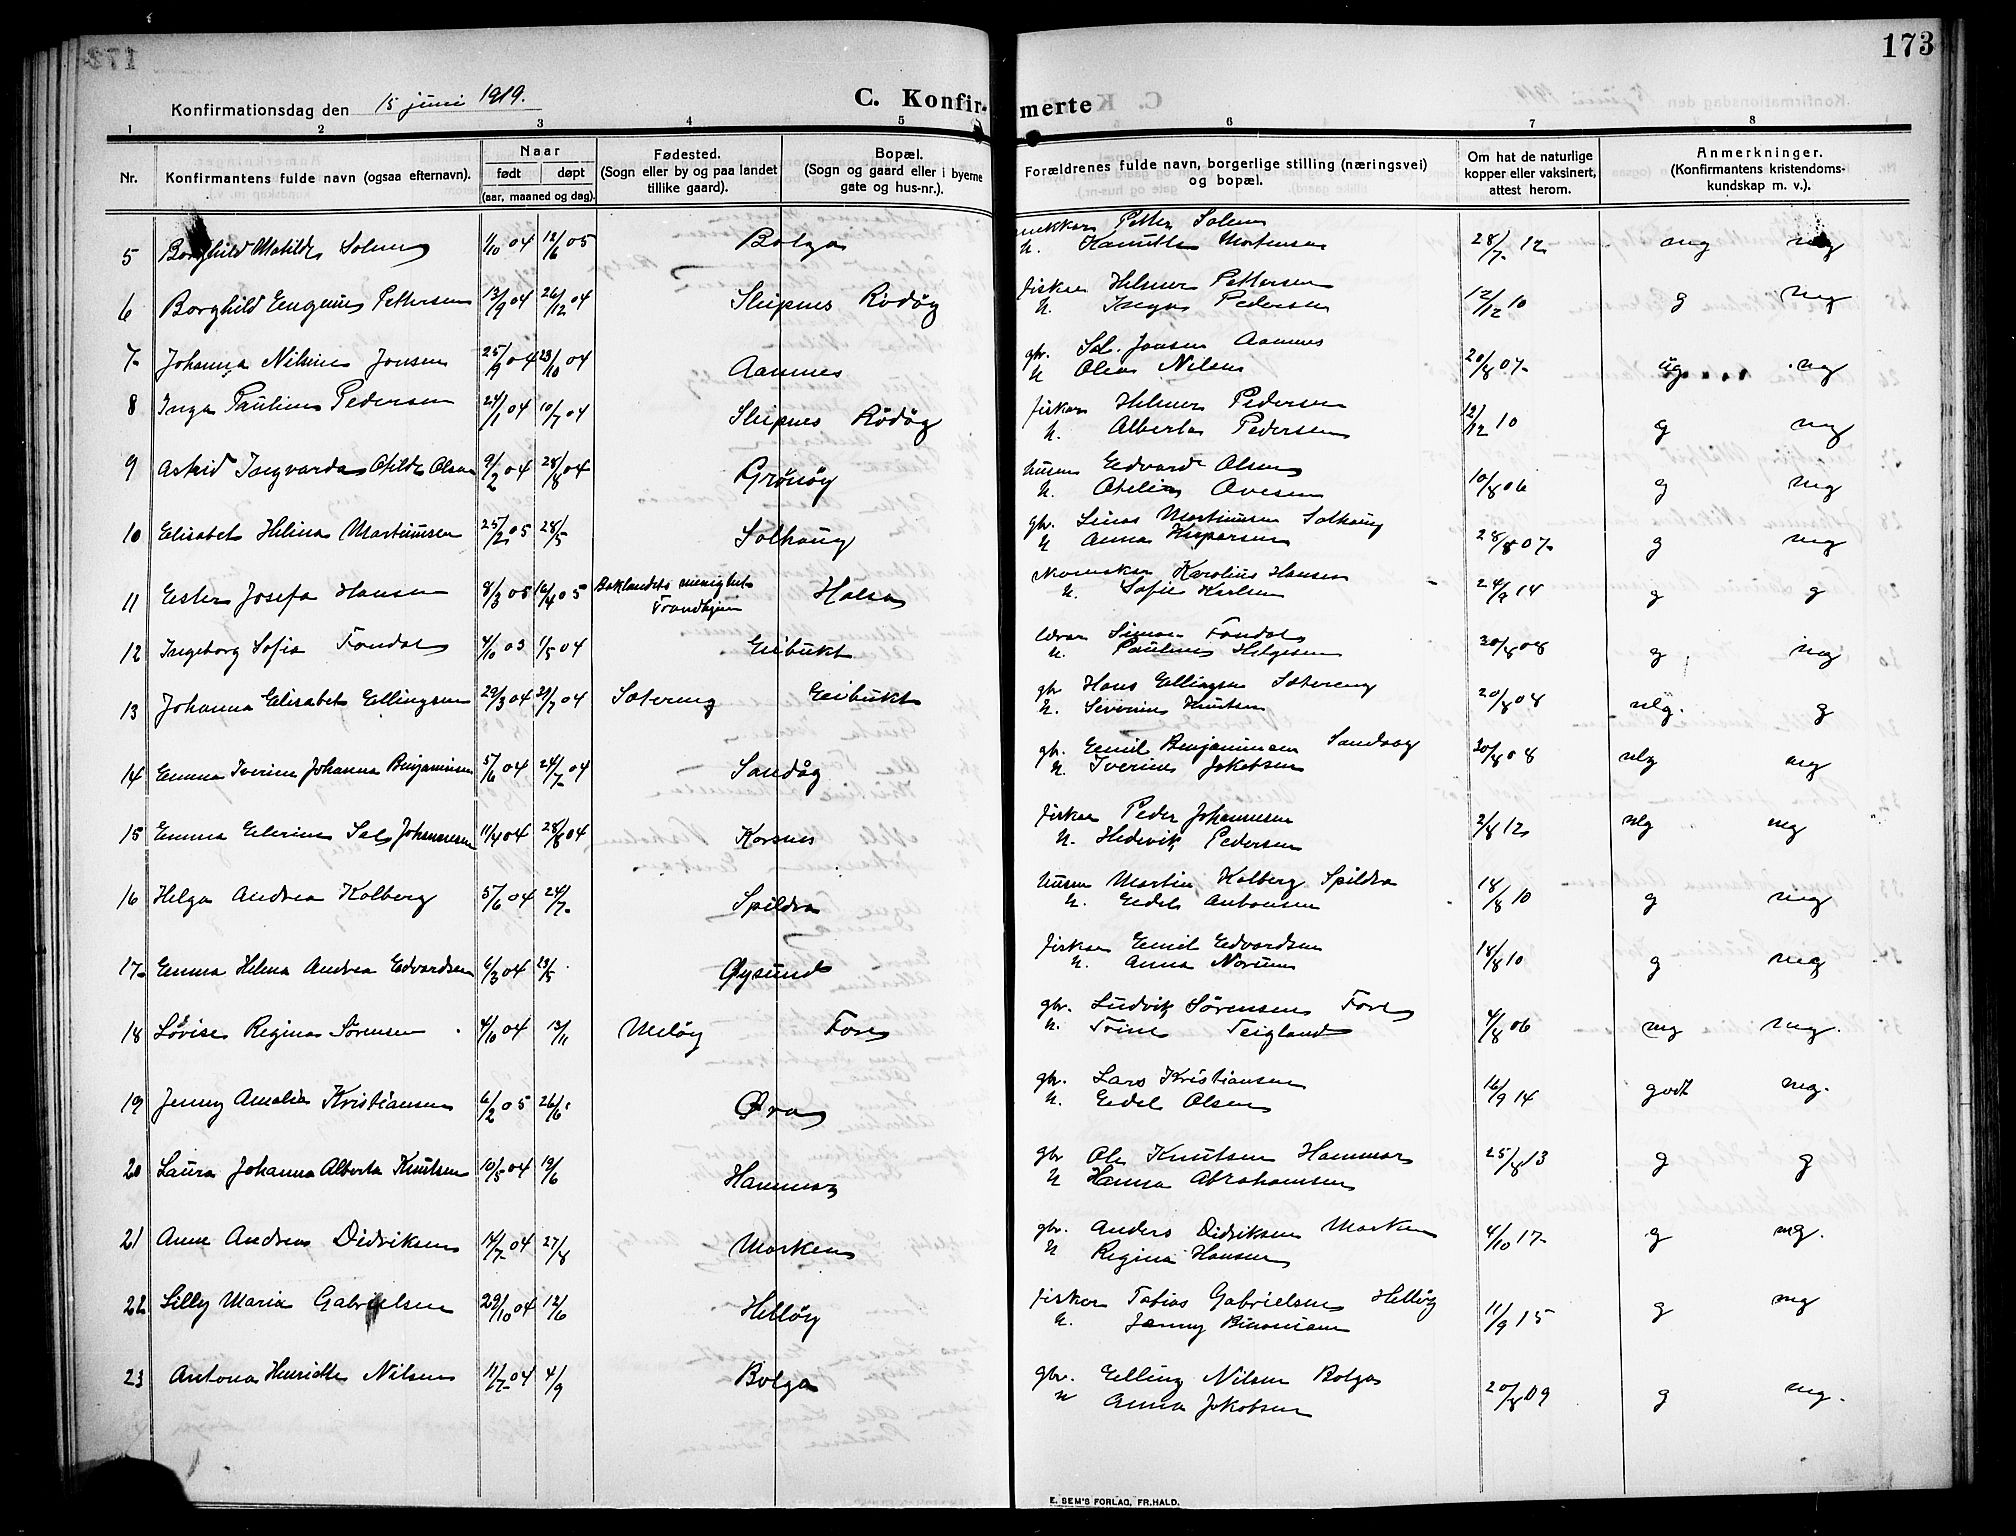 173
Konfirmationsdag den 15 juni 1919.
C. Konfirmerte
1 2 3 4 5 6 7 8
Nr. Konfirmantens fulde navn (ogsaa efternavn). Naar født døpt (aar, maaned og dag). Fødested. (Sogn eller by og paa landet tillike gaard). Bopæl. (Sogn og gaard eller i byerne gate og hus-nr.). Forældrenes fulde navn, borgerlige stilling (næringsvei) og bopæl. Om hat de naturlige kopper eller vaksinert, attest herom. Anmerkninger. (Konfirmantens kristendomskundskap m. v.).
5 Borghild Matilde Solem 1/10 04 12/6 05 Bolga Petter Solem 28/7 12 mg mg
H. Mortensen
6 Borghild Eugenie Pettersen 13/9 04 26/12 04 Slipnes Rödöy fisker Helmer Pettersen 12/12 10 g mg
H. Inga Pedersen
7 Johanna Nilsine Jonsen 25/9 04 23/10 04 Aamnes gbr. Sal. Jonsen Aamnes 20/8 07 ug mg
H Olea Nilsen
8 Inga Pauline Pedersen 24/1 04 10/7 04 Slipnes Rödöy fisker Helmer Pedersen 12/12 10 g mg
H. Alberta Pedersen
9 Astrid Ingvarda Otilde Olsen 9/2 04 28/8 04 Grönöy Edvard Olsen 10/8 06 g mg
H. Otelie Ovesen
10 Elisabet Helina Martinusen 25/2 05 28/5 Solhaug gbr. Linas Martinusen Solhaug 28/8 07 g mg
H Anna Kaspersen
11 Ester Josefa Hansen 8/3 05 16/4 05 Baklandets menighet Trondhjem Halsa Karolius Hansen 24/9 14 g g
H. Sofie Karlsen
12 Ingeborg Sofia Fondal 4/10 03 1/5 04 Enbukt Simon Fondal 20/8 08 g mg
H. Pauline Helgesen
13 Johanna Elisabet Ellingsen 29/3 04 31/7 04 Sætereng Enbukt gbr Hans Ellingsen Sætereng 20/8 08 mg. g
H. Severine Knutsen
14 Emma Iverine Johanna Benjaminsen 5/6 04 24/7 04 Sandåg gbr. Emil Benjaminsen Sandaag 20/8 08 mg mg
H. Iverine Jakobsen
15 Emma Elerine Johannesen 11/4 04 28/8 04 Korsnes fisker Peder Johannesen 2/8 12 mg mg
H. Hedevik Pedersen
16 Helga Andrea Kolberg 5/6 04 24/7 Spildra Martin Kolberg Spildra 18/8 10 g mg
H. Edel Antonsen
17 Emma Helena Andrea Edvardsen 6/3 04 23/5 Øysund fisker Emil Edvardsen 18/8 10 g mg
H. Anna Norum
18 Lovise Regina Sørensen 4/10 04 13/11 Melöy Fore gbr. Ludvik Sørensen Fore 4/8 06 mg mg.
H. Trine Teigland
19 Jenny Amalie Kristiansen 6/2 05 26/6 Øra gbr. Lars Kristiansen 16/9 14 godt mg.
H. Edel Olsen
20 Laura Johanna Alberta Knutsen 10/5 04 19/6 Hammar gbr Ole Knutsen Hammar 25/8 13 g g
H Hanna Abrahamsen
21 Anne Andrea Didriksen 14/7 04 27/8 Marken gbr. Anders Didriksen Marken 4/10 17 g mg.
H Regina Hansen
22 Lilly Maria Gabrielsen 29/10 04 12/6 Hellöy fisker Tobias Gabrielsen Hellöy 11/9 15 g mg
H. Jenny
23 Antona Henriette Nilsen 11/7 04 4/9 Bolga gbr. Elling Nilsen Bolga 20/8 09 g mg.
H Anna Jakobsen
E. SEM'S FORLAG, FR.HALD.